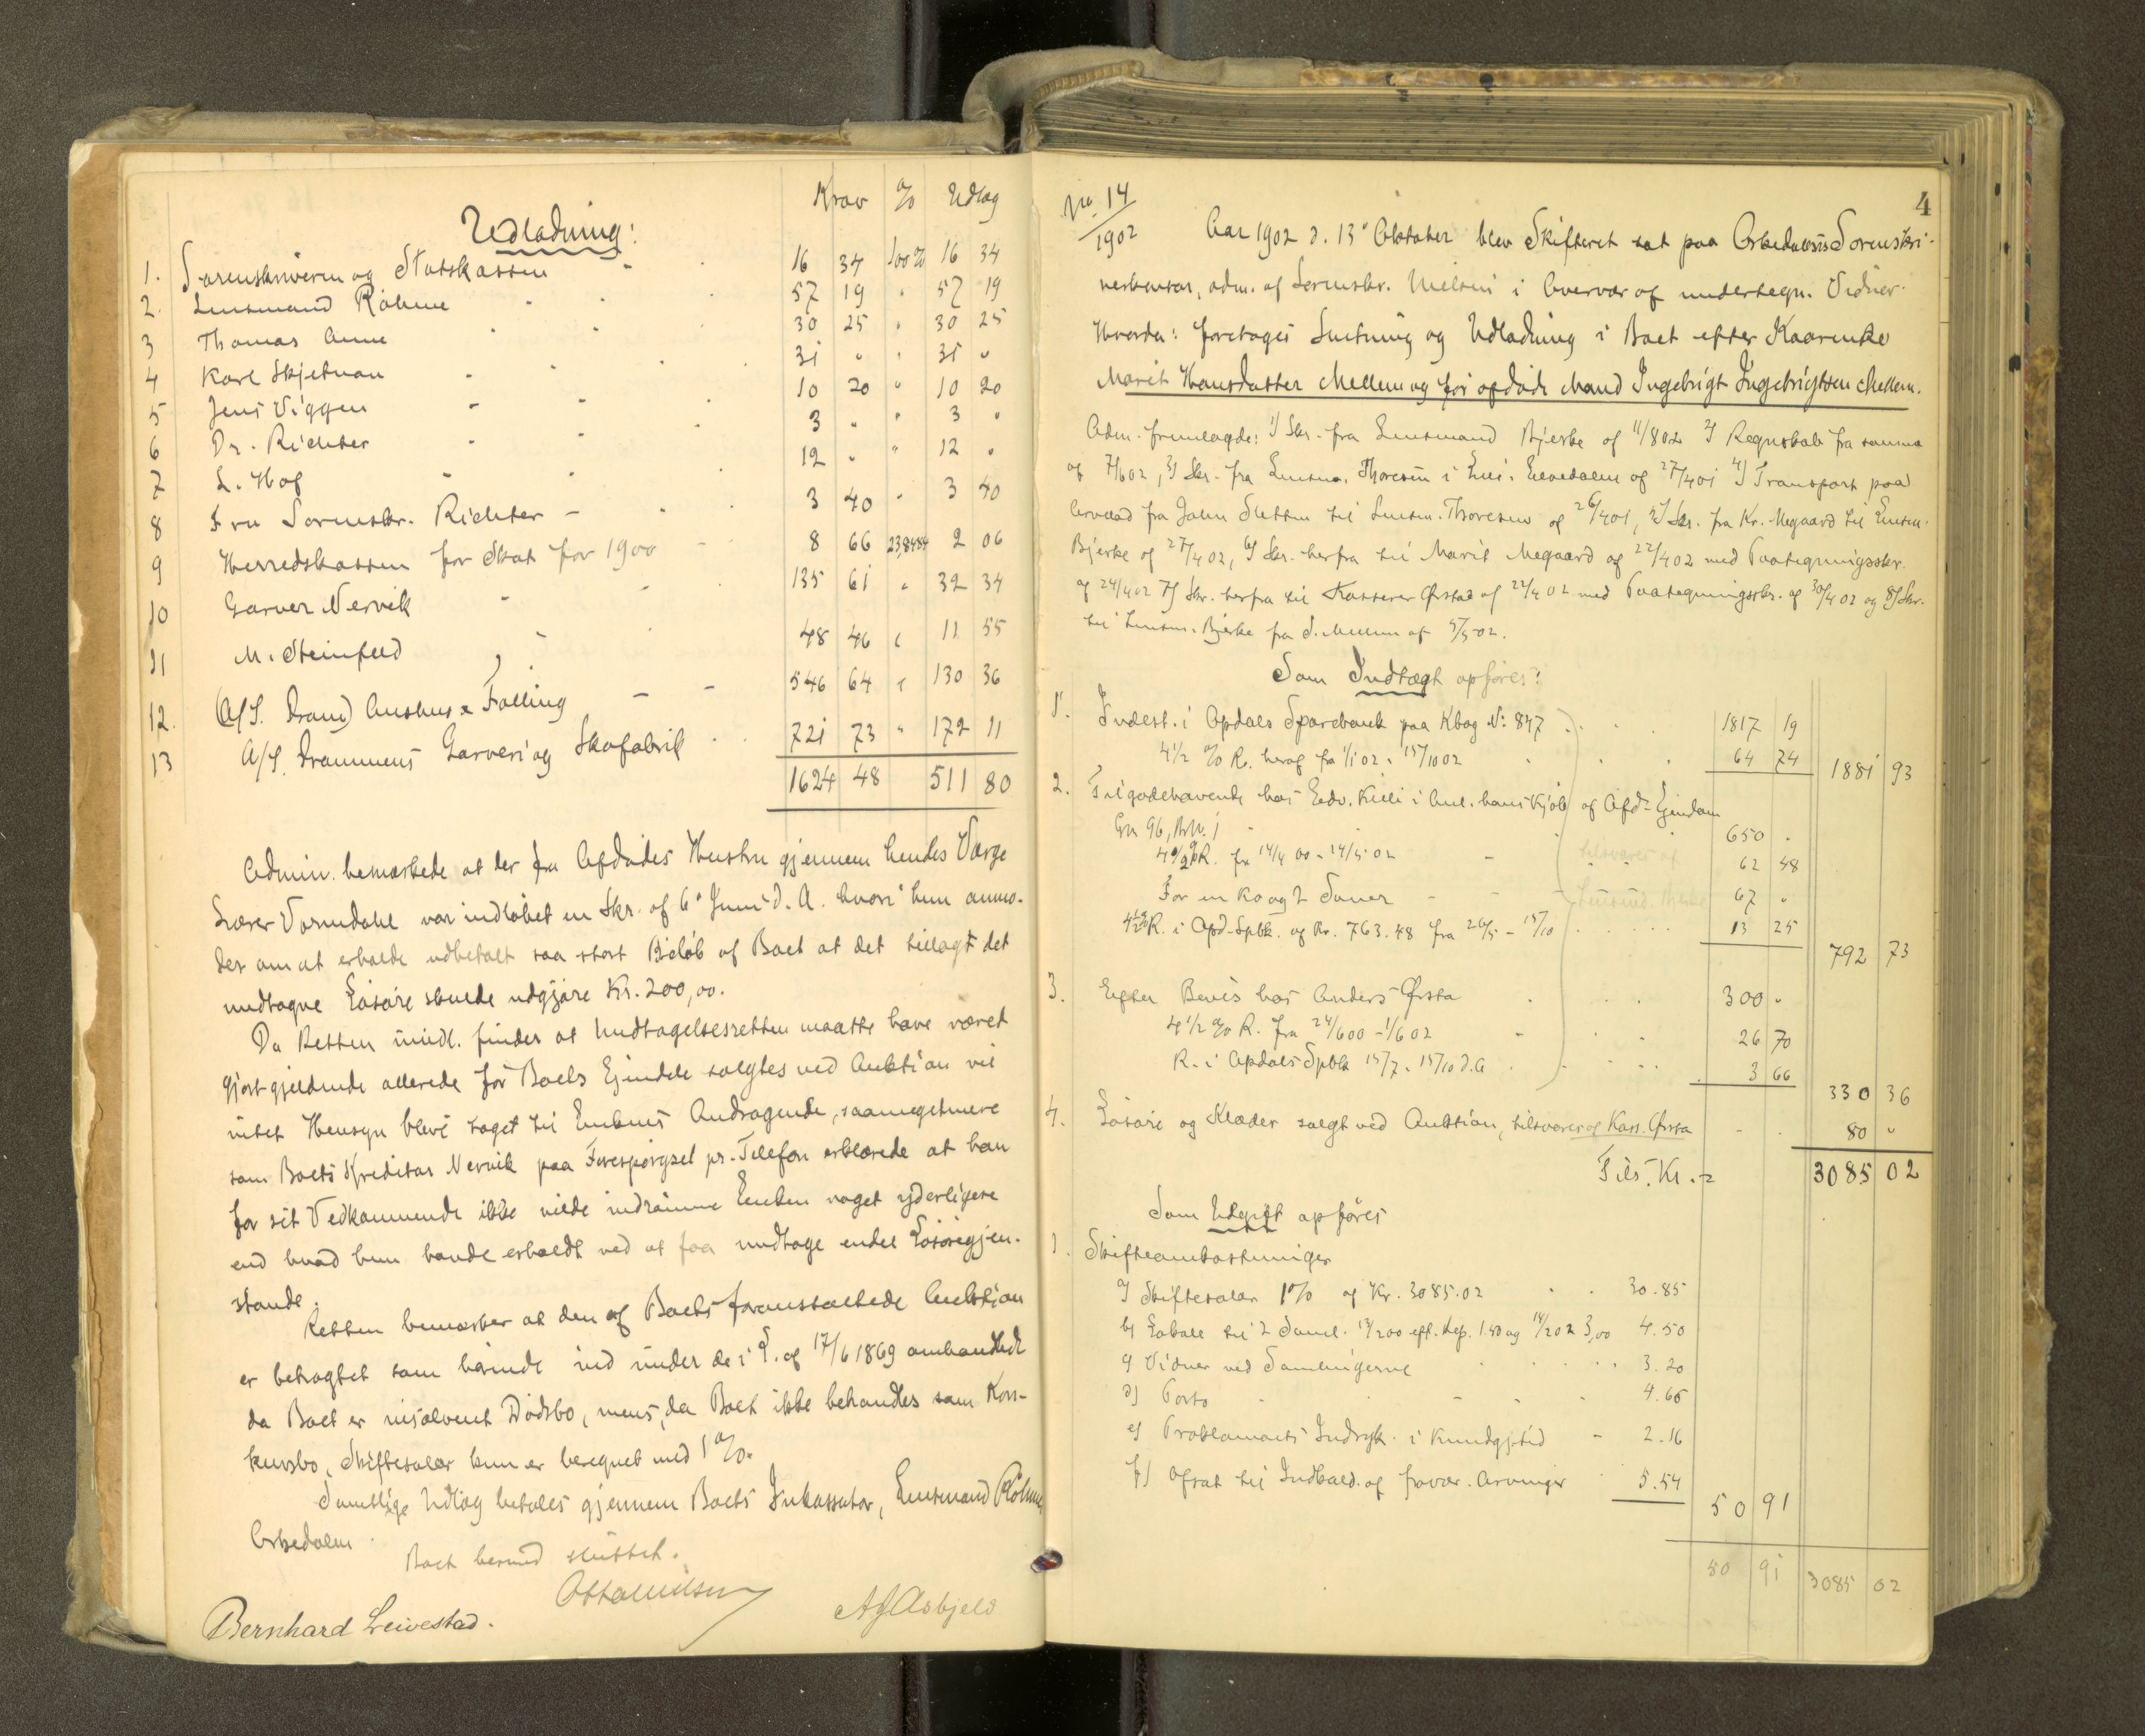 Krav % Udlæg
Udlodning:
1. Sorenskriveren og Statskassen - 16 34 100% 16 34
2. Lensmand Röhme 57 19 " 57 19
3 Thomas Aune 30 25 " 30 25
4 Karl Skjetnan - 31 " " 31 "
5 Jens Viggen - 10 20 " 10 20
6 Dr. Richter - 3 " " 3 "
7 L. Hof - 12 " " 12 "
8 Fru Sorenskr. Richter - 3 40 " 3 40
9 Herredskassen for Skat for 1900 - 8 66 23,8484 2 06
10 Garver Nervik - 135 61 " 32 34
11 M. Steinfeld 48 46 " 11 55
12. (A/S. Dram) Aushus & Falling - - 546 64 " 130 36
13 A/S. Drammens Garveri og Skofabrik 721 73 " 172 11
1624 48 511 80
Admin. bemærkede at der fra Afdødes Hustru gjennem hendes Værge
Lærer Vormdahl var indløbet en Skr. af 6' Juni d. A. hvori hun anmo-
der om at erholde udbetalt saa stort Beløb af Boet at det tillagt det
undtagne Løsøre skulde udgjøre Kr. 200,00.
Da Retten imidl. finder at Undtagelsesretten maatte have været
gjort gjeldende allerede før Boets Eiendele solgtes ved Auktion vil
intet Hensyn blive taget til Enkens Andragende, saameget mere
som Boets Kreditor Nervik paa Forespørgsel pr. Telefon erklærede at han
for sit Vedkommende ikke vilde indrømme Enken noget yderligere
end hvad hun havde erholdt ved at faa undtage endel Løsøregjen-
stande.
Retten bemærker at den af Boets foranstaltede Auktion
er betragtet som hørende ind under de i L. af 17/6 1869 omhandlede
da Boet er insolvent Dødsbo, mens, da Boet ikke behandles som Kon-
kursbo, Skiftesalær kun er beregnet med 1%.
Samtlige Udlæg betales gjennem Boets Inkassator, Lensmand Röhme,
Orkedalen.
Boet hermed sluttet.
Otto Nielsen
Bernhard Leivestad. A J Aasbjeld
4
No. 14/1902 Aar 1902 d. 13' Oktober blev Skifteret sat paa Orkedalens Sorenskri-
verkontor, adm. af Sorenskr. Nielsen i Overvær af undertegn. Vidner.
Hvorda: foretoges Slutning og Udlodning i Boet efter Kaarenke
Marit Hansdatter Mellem og før opdøde Mand Ingebrigt Ingebrigtsen Mellem.
Adm. fremlagde: 1) Skr. fra Lensmand Bjerke af 11/8 02 2) Regnskab fra samme
af 7/6 02, 3) Skr. fra Lensm. Thoresen i Elvedalen af 27/4 01 4) Transport paa
Arvelod fra John Sletten til Lensm. Thoresen af 26/4 01, 5) Skr. fra Kr. Megaard til Lensm.
Bjerke af 27/4 02, 6) Skr. herfra til Marit Megaard af 22/4 02 med Paategningsskr.
af 24/4 02 7) Skr. herfra til Kasserer Ørstad af 22/4 02 med Paategningsskr. af 30/4 02 og 8) Skr.
til Lensm. Bjerke fra S. Mellem af 5/5 02.
Som Indtægt opføres:
1. Indest. i Opdals Sparebank paa Kbog No: 847 1817 19
4 1/2 % R. heraf fra 1/1 02 - 15/10 02 64 74 1881 93
2. Tilgodehavende hos Edv. Killi i Anl. hans Kjøb af Afd. Eiendom
Gn 96, Bn. 1 650 "
4 1/2 % R. fra 14/4 00 - 14/5 02 - tilsvares af 62 48
For en Ko og 2 Sauer - - Lensmd. Bjerke 67 "
4 1/2 % R. i Opd. Spbk. af Kr. 763.48 fra 26/5 - 15/10 13 25
792 73
3. Efter Bevis hos Anders Ørsta 300 "
4 1/2 % R. fra 24/6 00 - 1/6 02 26 70
R. i Opdals Spbk 15/7 - 15/10 d.A 3 66
330 36
4. Løsøre og Klæder solgt ved Auktion, tilsvares af Kass. Ørsta - 80 "
Tils. Kr. = 3085 02
Som Udgift opføres
1. Skifteomkostninger
a) Skiftesalær 1% af Kr. 3085.02 30.85
b) Lokale til 2 Saml. 13/2 00 eft. Rep. 1.50 og 14/2 02 3,00 4.50
c) Vidner ved Samlingerne 3.20
d) Porto - - 4.66
e) Proklamaets Indryk. i Kundgjtid - 2.16
f) Afsat til Indkald. af fravær. Arvinger 5.54
50 91
50 91 3085 02